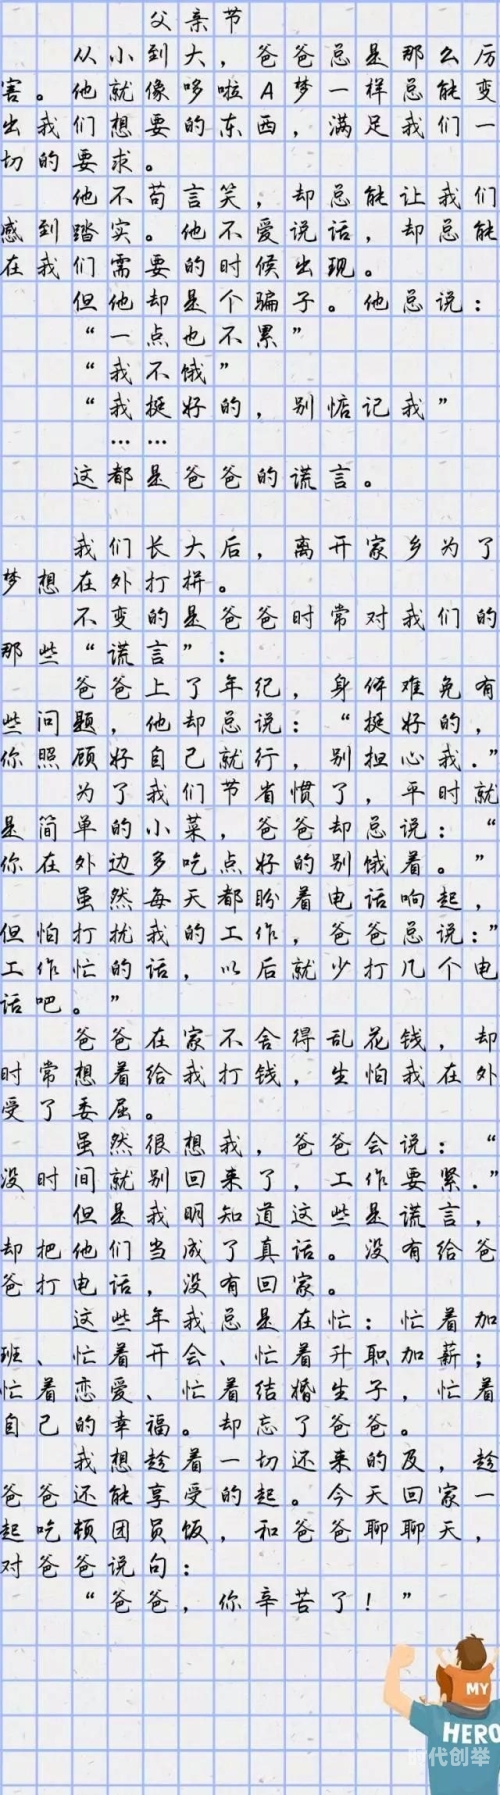 父亲节
从小到大，爸爸总是那么厉
害。他就像哆啦A梦一样总能变
出我们想要的东西，满足我们一
切的要求。
他不苟言笑，却总能让我们
感到踏实。他不爱说话，却总能
在我们需要的时候出现。
但他却是个骗子。他总说：
“一点也不累”
“我不饿”
“我挺好的，别惦记我”
……
这都是爸爸的谎言。
我们长大后，离开家乡为了
梦想在外打拼。
不变的是爸爸时常对我们的
那些“谎言”：
爸爸上了年纪，身体难免有
些问题，他却总说：“挺好的，
你照顾好自己就行，别担心我.”
为了我们节省惯了，平时就
是简单的小菜，爸爸却总说：“
你在外边多吃点好的别饿着。”
虽然每天都盼着电话响起，
但怕打扰我的工作，爸爸总说：”
工作忙的话，以后就少打几个电
话吧。”
爸爸在家不舍得乱花钱，却
时常想着给我打钱，生怕我在外
受了委屈。
虽然很想我，爸爸会说：“
没时间就别回来了，工作要紧.”
但是我明知道这些是谎言，
却把他们当成了真话。没有给爸
爸打电话，没有回家。
这些年我总是在忙：忙着加
班、忙着开会、忙着升职加薪；
忙着恋爱、忙着结婚生子，忙着
自己的幸福。却忘了爸爸。
我想趁着一切还来的及，趁
爸爸还能享受的起。今天回家一
起吃顿团员饭，和爸爸聊聊天，
对爸爸说句：
“爸爸，你辛苦了！”
MY
HERO
时代创举